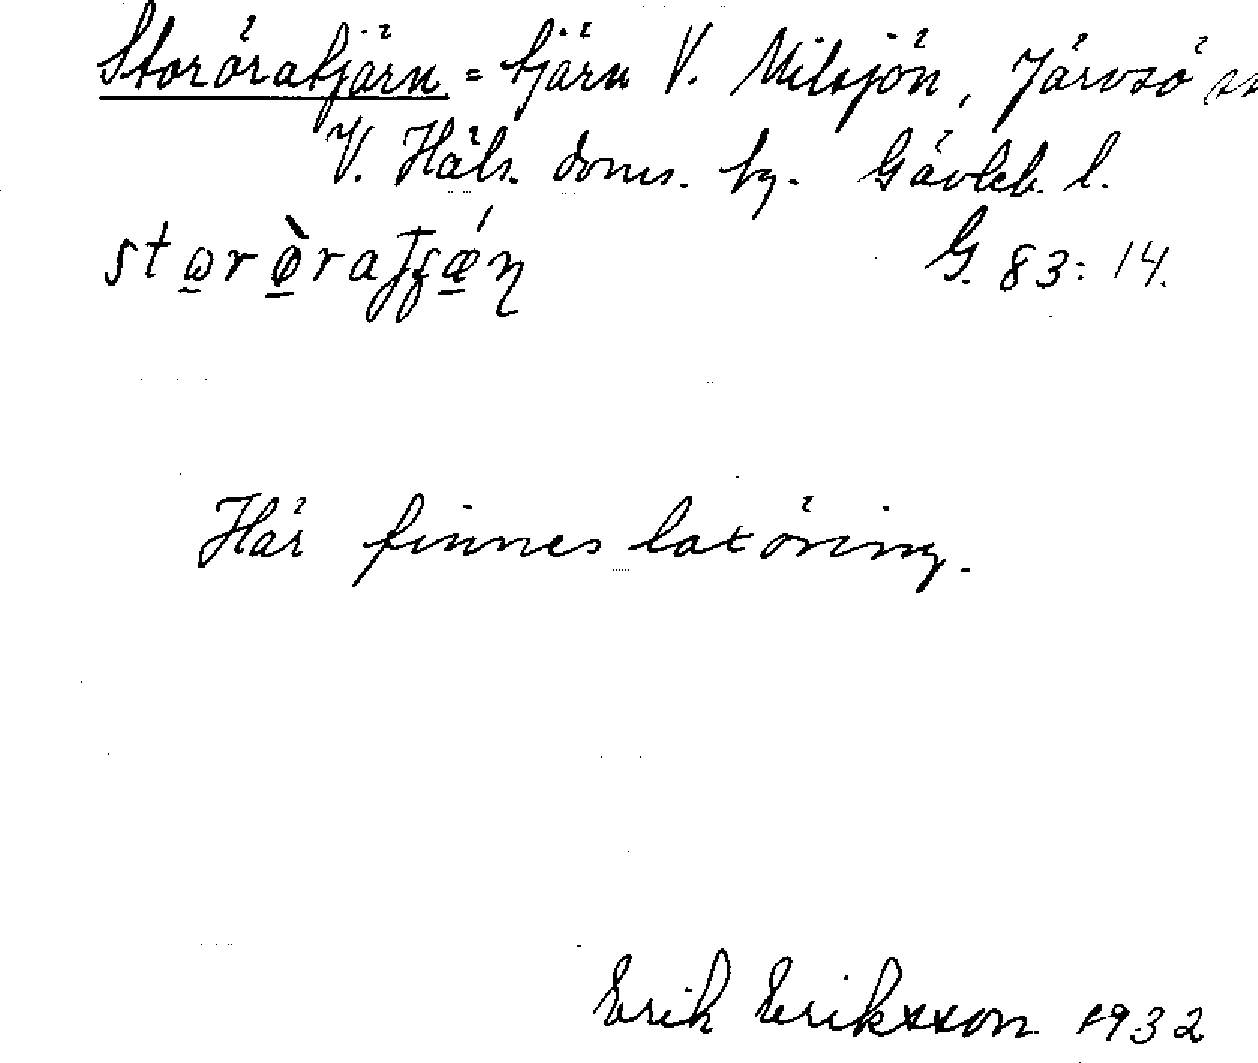 Storöratjärn = tjärn V. Milsjön, Järvsö sn
V. Häls. doms. by. Gävleb. l.
G. 83: 14.
Här finnes laxöring.
Erik Eriksson 1932